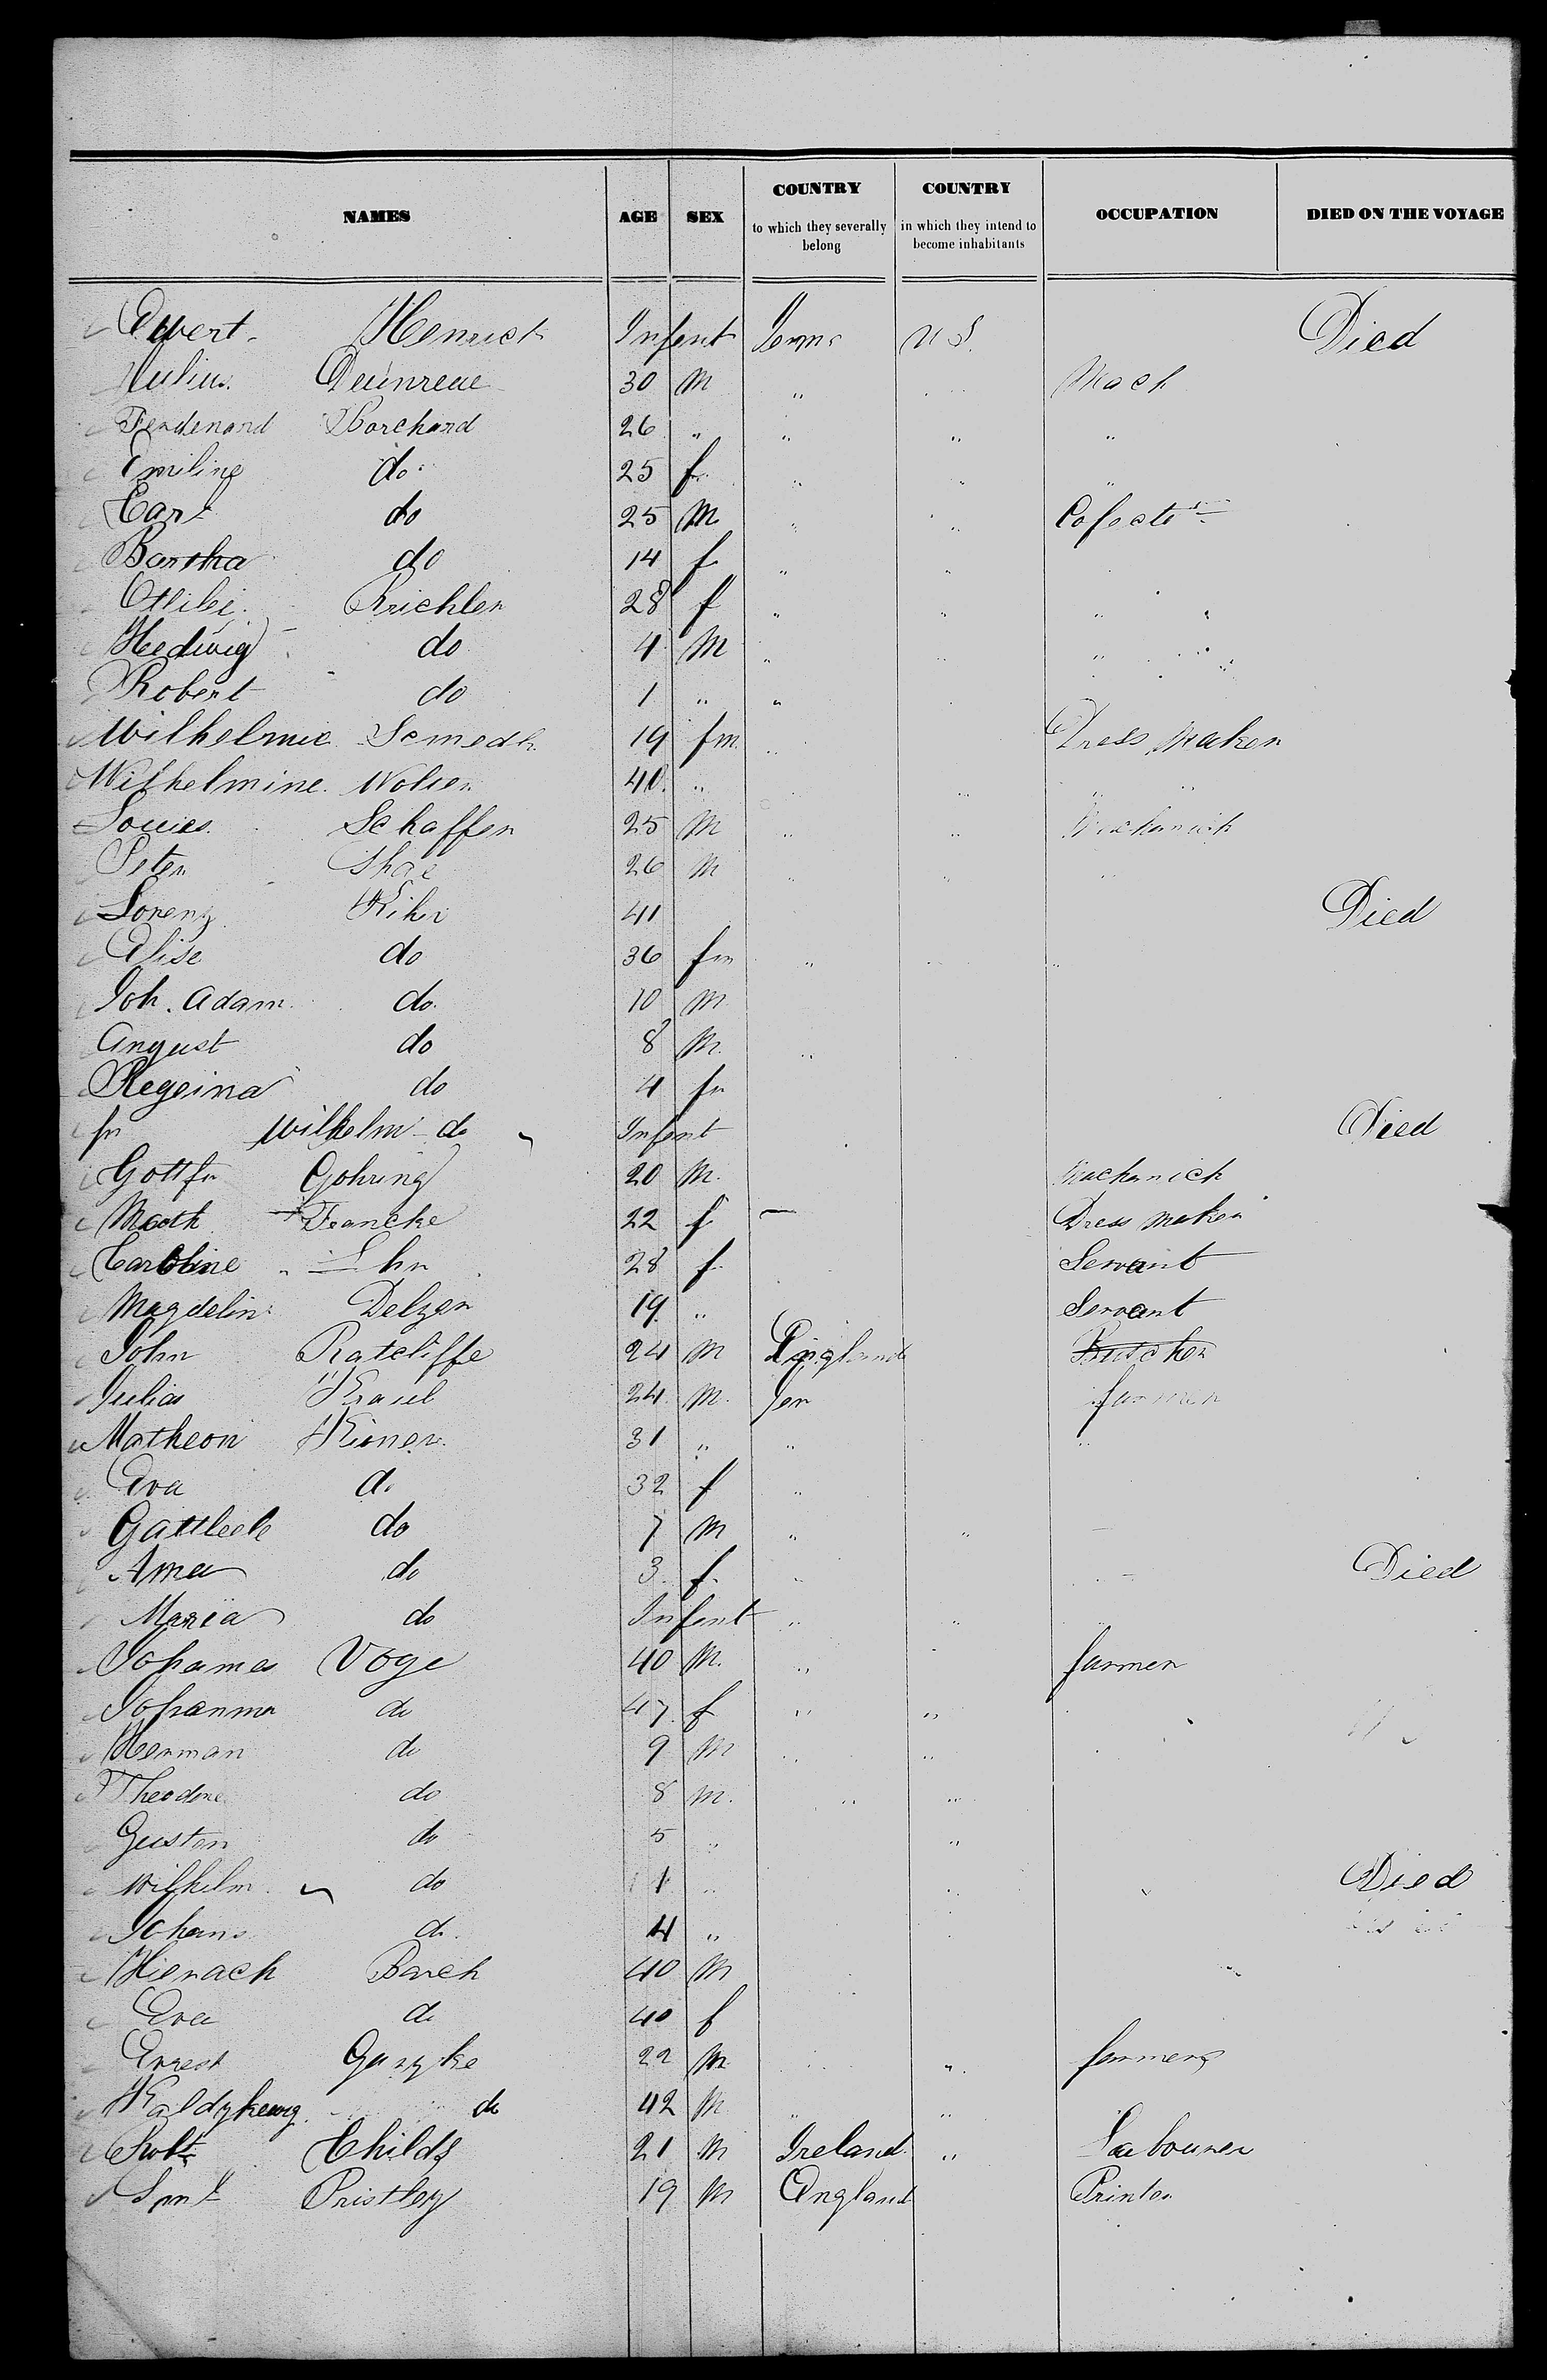 NAMES AGE SEX COUNTRY to which they severally belong COUNTRY in which they intend to become inhabitants OCCUPATION DIED ON THE VOYAGE
Ewert Henrick Infent U S. Died
Julius 30 M " Mach
Ferdenand Borchard 26 " " " "
Emiline do 25 f " " "
Carl do 25 M " "
Bartha do 14 f " "
Richler 28 f " " "
Hedwig do 4 M " "
Robert do 1 " "
Wilhelmie Semedh 19 fm " Dress Maker
Wilhelmine Wolsen 40 " " "
Louies Schaffer 25 M " " Mechanick
Peter 26 M " " "
Lorenz 41 Died
Elise do 36 fm "
Joh. Adam do 10 M
August do 8 M "
Regeina do 4 fm
fm Wilhelm do Infent Died
Gottfr Gohring 20 M. Machanick
Math Francke 22 f — Dress Maker
Caroline 28 f Servant
Magdelin Delzer 19 " Servant
John Ratcliffe 24 M England Butcher
Julias Kraul 24 M. Ger farmer
Matheon Kioner 31 " " "
Eva do 32 f "
Gattleeb do 7 M " "
Anna do 3 f " Died
Maria do Infent " "
Johames Voge 40 M. " farmer
Johanna do 47 f " "
Herman do 9 M " "
Theodore do 8 M. " "
Gusten do 5 " "
Wilhelm do 1 " " Died
Johans do 4 "
Hienach Barch 40 M
Eva do 40 f
Ernest 22 M " farmers
do 42 M " "
Robt Childs 21 M Ireland " Labourer
Pristley 19 M England Printer